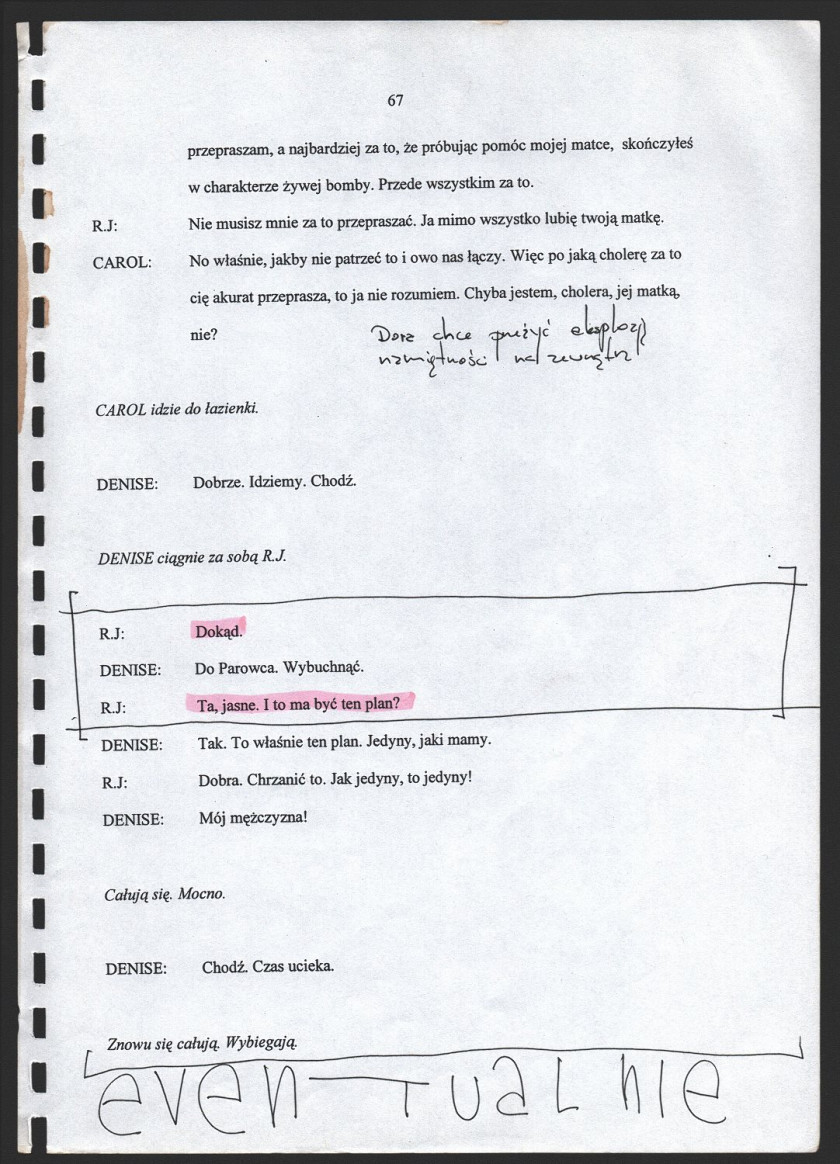 67
przepraszam, a najbardziej za to, że próbując pomóc mojej matce, skończyłeś
w charakterze żywej bomby. Przede wszystkim za to.
R.J: Nie musisz mnie za to przepraszać. Ja mimo wszystko lubię twoją matkę.
CAROL: No właśnie, jakby nie patrzeć to i owo nas łączy. Więc po jaką cholerę za to
cię akurat przeprasza, to ja nie rozumiem. Chyba jestem, cholera, jej matką,
nie?
chce przeżyć eksplozję
namiętności na zewnątrz
CAROL idzie do łazienki.
DENISE: Dobrze. Idziemy. Chodź.
DENISE ciągnie za sobą R.J.
R.J: Dokąd.
DENISE: Do Parowca. Wybuchnąć.
R.J: Ta, jasne. I to ma być ten plan?
DENISE: Tak. To właśnie ten plan. Jedyny, jaki mamy.
R.J: Dobra. Chrzanić to. Jak jedyny, to jedyny!
DENISE: Mój mężczyzna!
Całują się. Mocno.
DENISE: Chodź. Czas ucieka.
Znowu się całują. Wybiegają.
evenTualnie